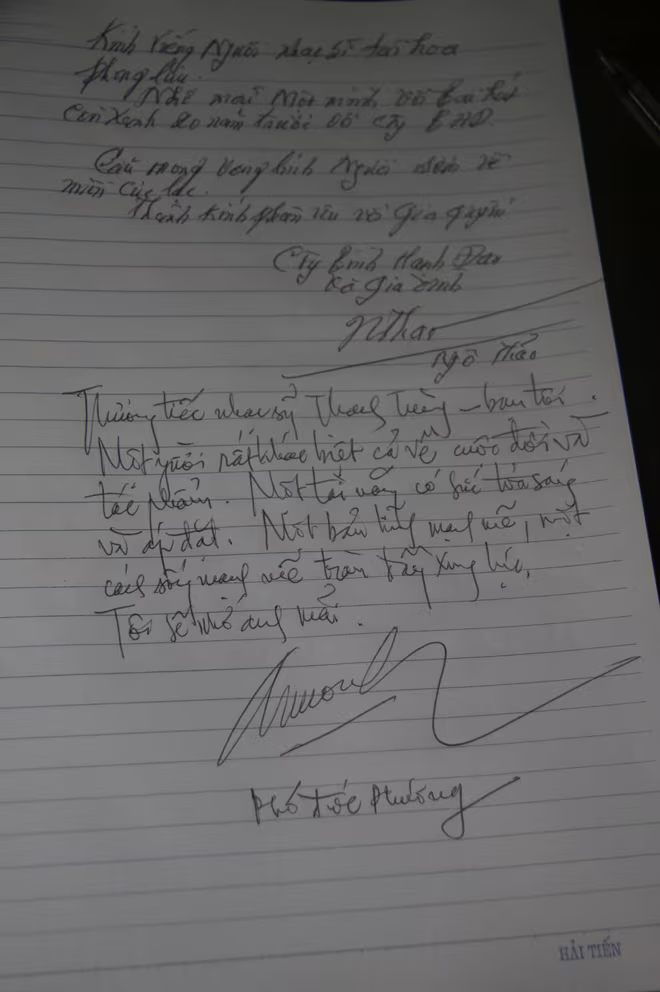 Kính viếng Người nhạc sĩ tài hoa
phong lưu.
Nhớ mãi Một mình với bài hát
Còn xanh 20 năm trước với Cty
Cầu mong vong linh Người sớm về
miền cực lạc.
Thành kính phân ưu với gia quyến
Cty Hạnh
Và Gia đình
NThao
Ngô Thảo
Thương tiếc nhạc sỹ Thanh Tùng – bạn tôi.
Một người rất khác biệt cả về cuộc đời và
tác phẩm. Một tài năng có sức tỏa sáng
và áp đặt. Một bản lĩnh mạnh mẽ, một
cách sống mạnh mẽ tràn đầy xung lực.
Tôi sẽ nhớ anh mãi.
Phó Đức Phương
HẢI TIẾN